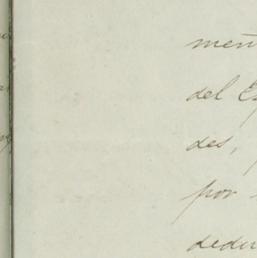 men
del E
des,
por
dedu